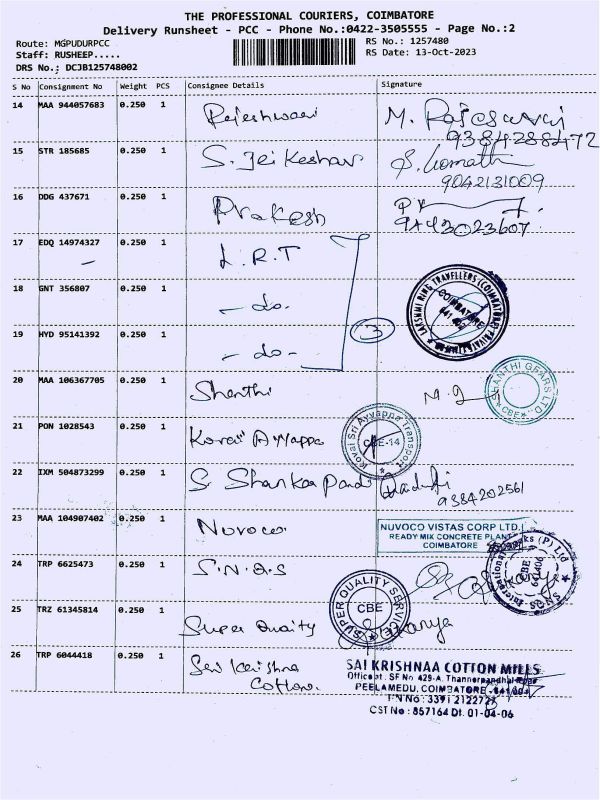 THE PROFESSIONAL COURIERS, COIMBATORE
Delivery Runsheet - PCC - Phone No.:0422-3505555 - Page No.:2
Route: MGPUDURPCC
Staff: RUSHEEP.....
DRS No.: DCJB125748002
RS No.: 1257480
RS Date: 13-Oct-2023
S No Consignment No Weight PCS Consignee Details Signature
14 MAA 944057683 0.250 1 Rajeshwari M. Rajeswari
9384288472
15 STR 185685 0.250 1 S. Jei Keshav S. Gomathi
9042131009
16 DDG 437671 0.250 1 Prakesh
9443023607
17 EDQ 14974327 0.250 1 L.R.T
18 GNT 356807 0.250 1 - do -
19 HYD 95141392 0.250 1 - do -
3
LAKSHMI RING TRAVELLERS (COIMBATORE) PRIVATE LIMITED
COIMBATORE
641 402
20 MAA 106367705 0.250 1 Shanthi
SHANTHI GEARS LTD.
CBE
21 PON 1028543 0.250 1 Kovai Ayyappa
Kovai Sri Ayyappa Transport
CBE-14
22 IXM 504873299 0.250 1 S. Shankaa Pandi
9384202561
23 MAA 104907402 0.250 1 Nuvoco
NUVOCO VISTAS CORP LTD.
READY MIX CONCRETE PLANT
COIMBATORE
24 TRP 6625473 0.250 1 S.N.Q.S
SNQS International Socks (P) Ltd
CBE
641406
25 TRZ 61345814 0.250 1 Super Quality
SUPER QUALITY SERVICE
CBE
26 TRP 6044418 0.250 1 Sai Krishna
Cotton.
SAI KRISHNAA COTTON MILLS
Office at. SF No 429-A. Thanneerpandhal Road
PEELAMEDU, COIMBATORE - 641 004
TIN No : 3391 2122723
CST No : 857164 Dt. 01-04-06